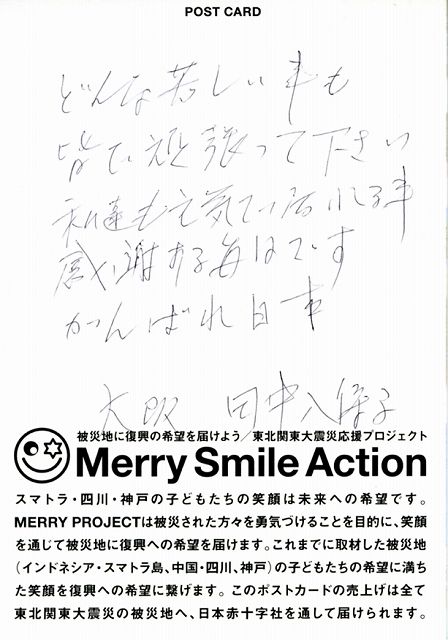 POST CARD
どんな苦しい事も
皆で頑張って下さい
私達も元気で居れる事
感謝する毎日です
がんばれ日本
大阪 田中八保子
被災地に復興の希望を届けよう/東北関東大震災応援プロジェクト
Merry Smile Action
スマトラ・四川・神戸の子どもたちの笑顔は未来への希望です。
MERRY PROJECTは被災された方々を勇気づけることを目的に、笑顔
を通じて被災地に復興への希望を届けます。これまでに取材した被災地
(インドネシア・スマトラ島、中国・四川、神戸)の子どもたちの希望に満ち
た笑顔を復興への希望に繋げます。このポストカードの売上げは全て
東北関東大震災の被災地へ、日本赤十字社を通して届けられます。